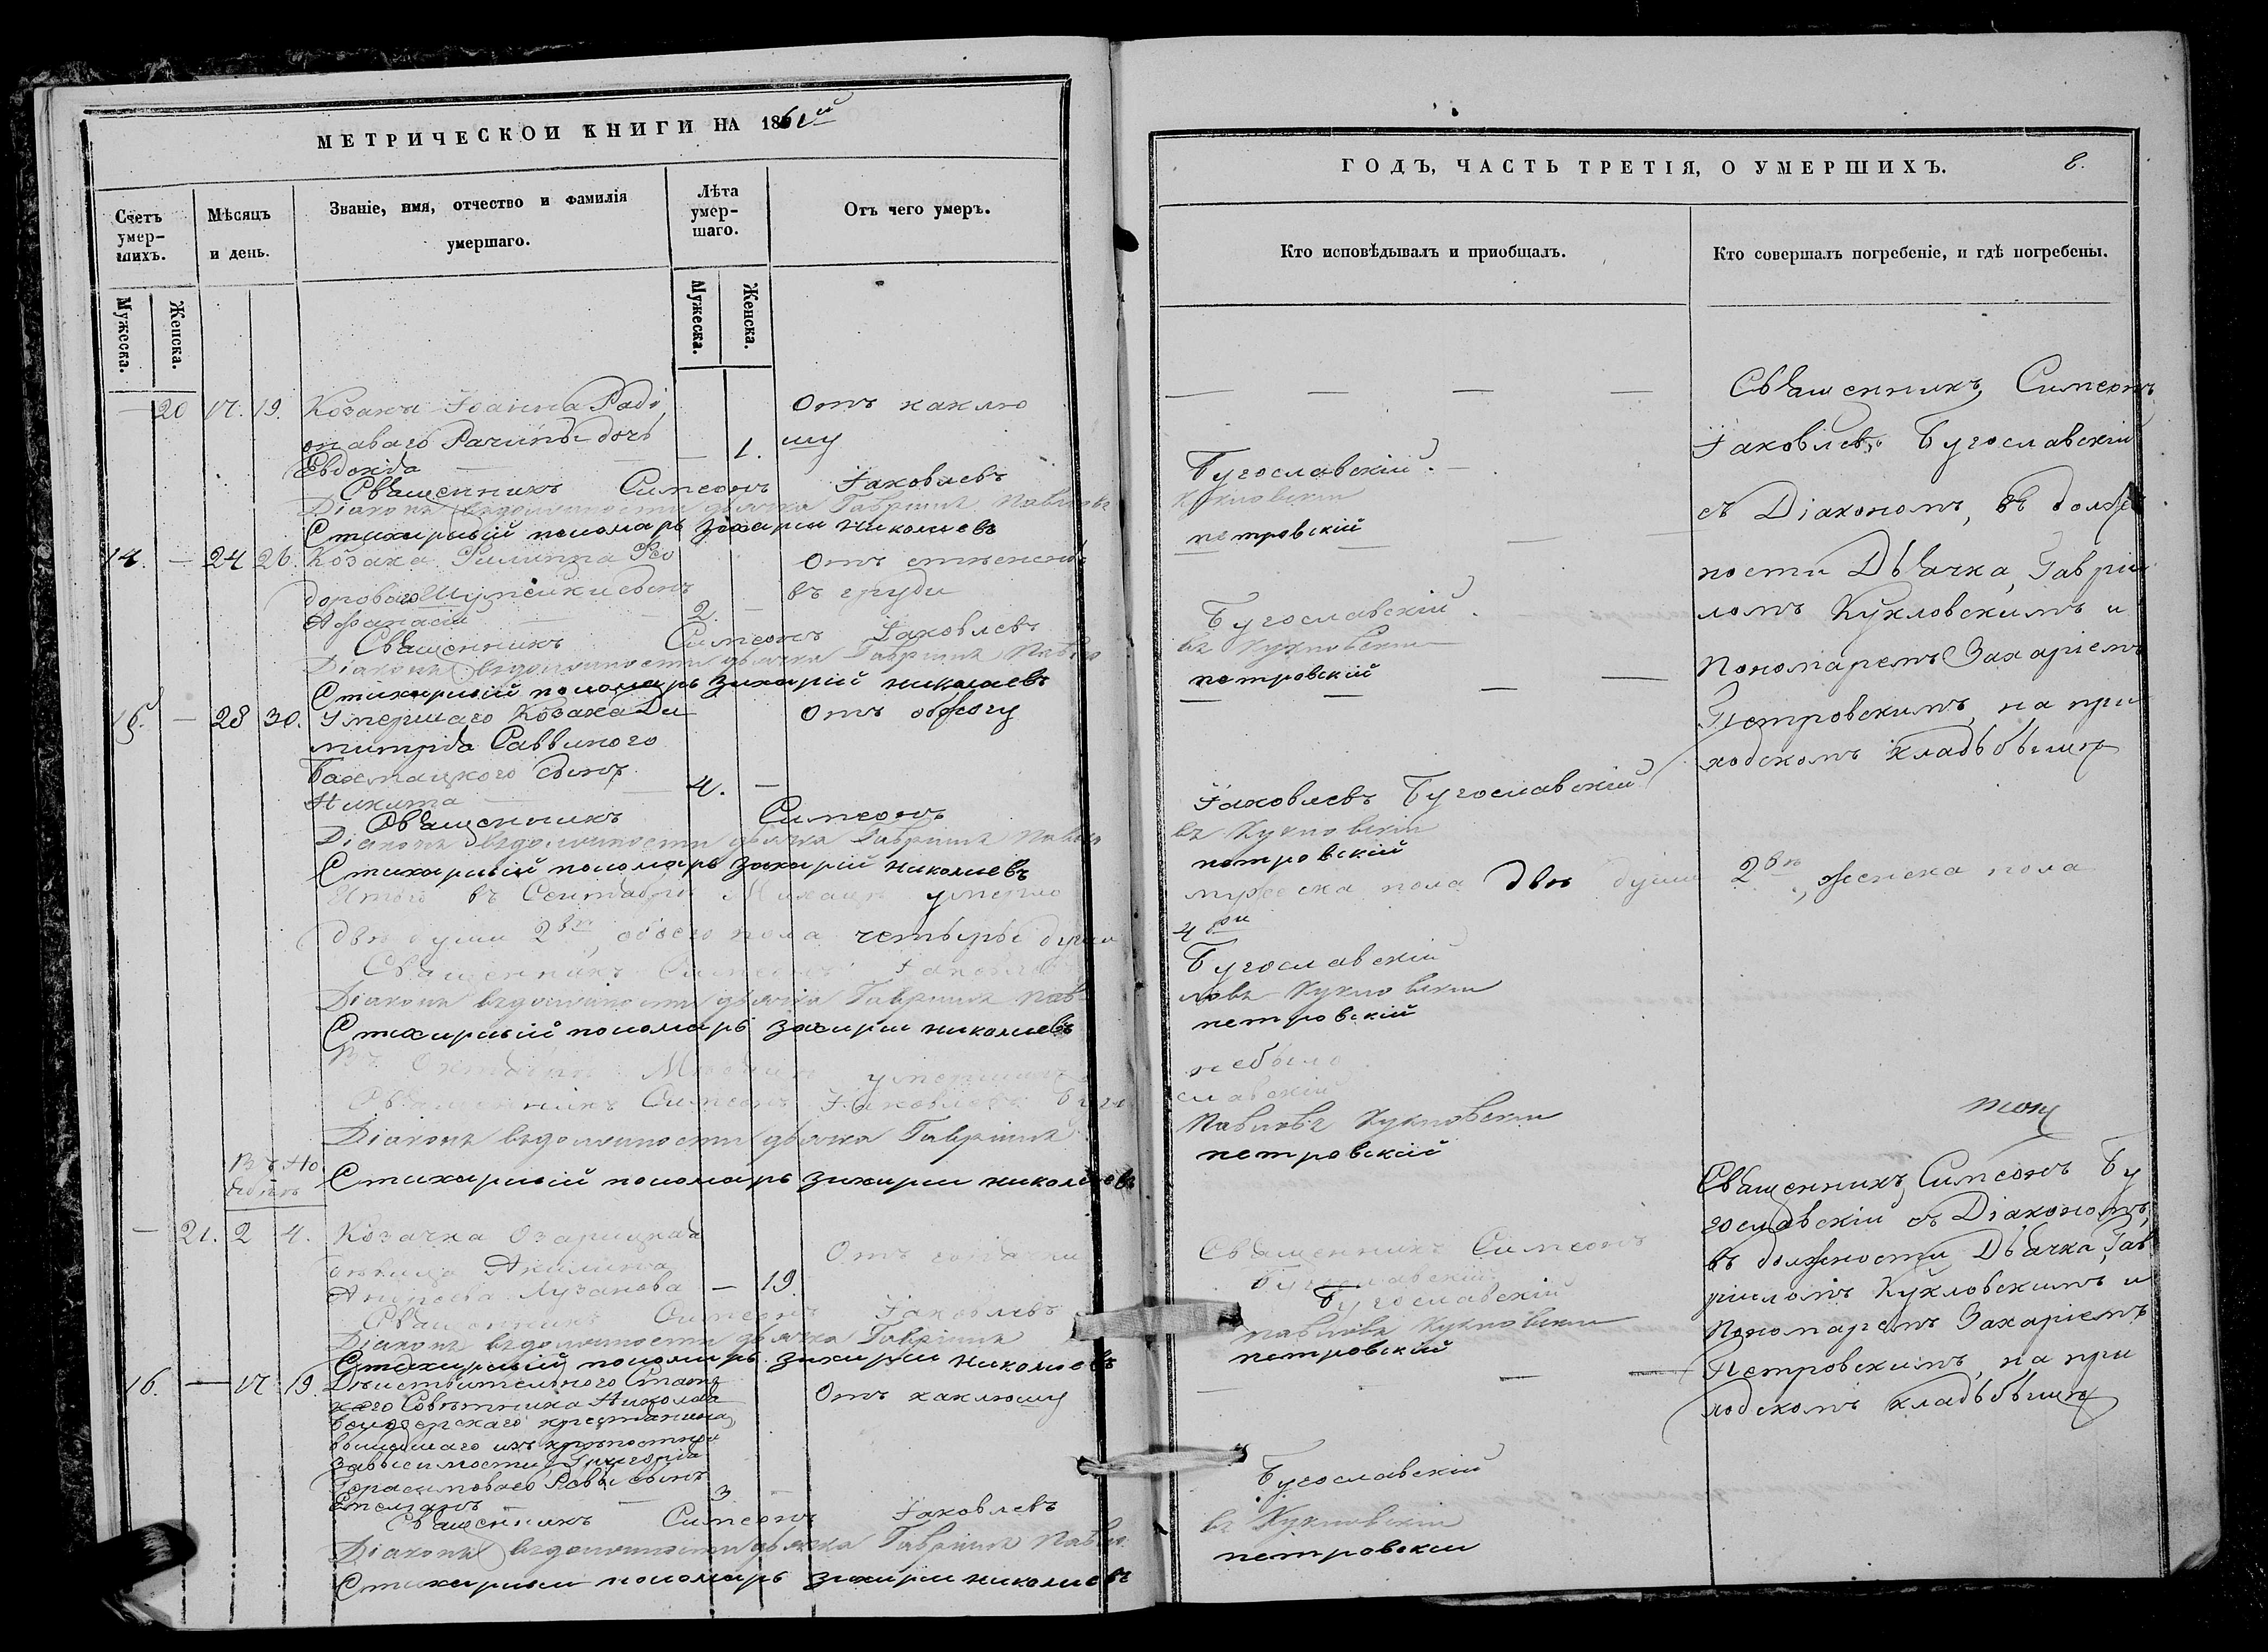 МЕТРИЧЕСКОЙ КНИГИ НА 1861й
Счетъ умер-шихъ.
Мѣсяцъ и день.
Званіе, имя, отчество и фамилія умершаго.
Лѣта умер-шаго.
Отъ чего умеръ.
Мужеска.
Женска.
Мужеска.
Женска.
— 20 17. 19. Козака Іоанна Раді
оноваго Рачины дочь — 1. Отъ каклю
Евдокіа шу
Священникъ Симеонъ Іаковлевъ
Діаконъ въ должности дьячка Гавріилъ Павловъ
Стихарный пономарь Захарій Николаевъ
14. — 24 26. Козака Филиппа Фео
дороваго Шумейки сынъ Отъ стѣсненія
Афанасій 2. — въ груди
Священникъ Симеонъ Іаковлевъ
Діаконъ въ должности дьячка Гавріилъ Павло
Стихарный пономарь Захарій Николаевъ
15. — 28 30. Умершаго Козака Ди
митріа Саввиного Отъ обжогу
Бахмацкого сынъ
Никита 4. —
Священникъ Симеонъ
Діаконъ въ должности дьячка Гавріилъ Павло
Стихарный пономарь Захарій Николаевъ
Итого въ Сентябрѣ Мѣсяцѣ умерло
двѣ души 2вѣ, обоего пола четырѣ души
Священникъ Симеонъ Іаковлевъ
Діаконъ въ должности дьячка Гавріилъ Пав
Стихарный пономарь Захарій Николаевъ
Въ Октябрѣ Мѣсяцѣ умершихъ
Священникъ Симеонъ Іаковлевъ Буго
Діаконъ въ должности дьячка Гавріилъ
Въ Но
ябрѣ
Стихарный пономарь Захарій Николаевъ
— 21. 2 4. Козачка
Акилина
— 19. Отъ
Священникъ Симеонъ Іаковлевъ
Діаконъ въ должности дьячка Гавріилъ
Стихарный пономарь Захарій Николаевъ
16. — 17 19. Дѣйствительного Статс
каго Совѣтника Николая Отъ каклюшу
крестьянина
вышедшаго изъ крѣпостной
зависимости Григорія
Герасимоваго сынъ
Стефанъ 3 —
Священникъ Симеонъ Іаковлевъ
Діаконъ въ должности дьячка Гавріилъ Павло
Стихарный пономарь Захарій Николаевъ
ГОДЪ, ЧАСТЬ ТРЕТІЯ, О УМЕРШИХЪ.
8.
Кто исповѣдывалъ и пріобщалъ.
Кто совершалъ погребеніе, и гдѣ погребены.
Бугославскій
Кукловскій
петровскій
Бугославскій
въ Кукловскій
петровскій
Іаковлевъ Бугославскій
въ Кукловскій
петровскій
мужеска пола двѣ души 2вѣ, женска пола
4ри
Бугославскій
ловъ Кукловскій
петровскій
небыло
славскій
Павловъ Кукловскій
петровскій
Священникъ Симеонъ
Бугославскій
Бугославскій
Павловъ Кукловскій
петровскій
Бугославскій
въ Кукловскій
петровскій
Священникъ Симеонъ
Іаковлевъ Бугославскій
съ Діакономъ, въ долж
ности Дьячка, Гаврiи
ломъ Кукловскимъ и
Пономаремъ Захаріемъ
Петровскимъ, на при
ходскомъ кладьбыщѣ
тожъ
Священникъ Симеонъ Бу
гославскій съ Діакономъ,
въ должности Дьячка, Гав
ріиломъ Кукловскимъ и
Пономаремъ Захаріемъ
Петровскимъ, на при
ходскомъ кладьбыщѣ